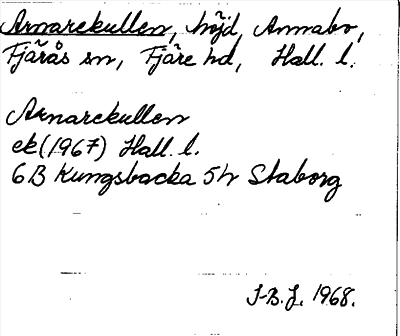 Arnarekullen, höjd, Annabo,
Fjärås sn, Fjäre hd, Hall. l.
Arnarekullen
ek (1967) Hall. l.
6B Kungsbacka 5h Staborg
J-B.J. 1968.